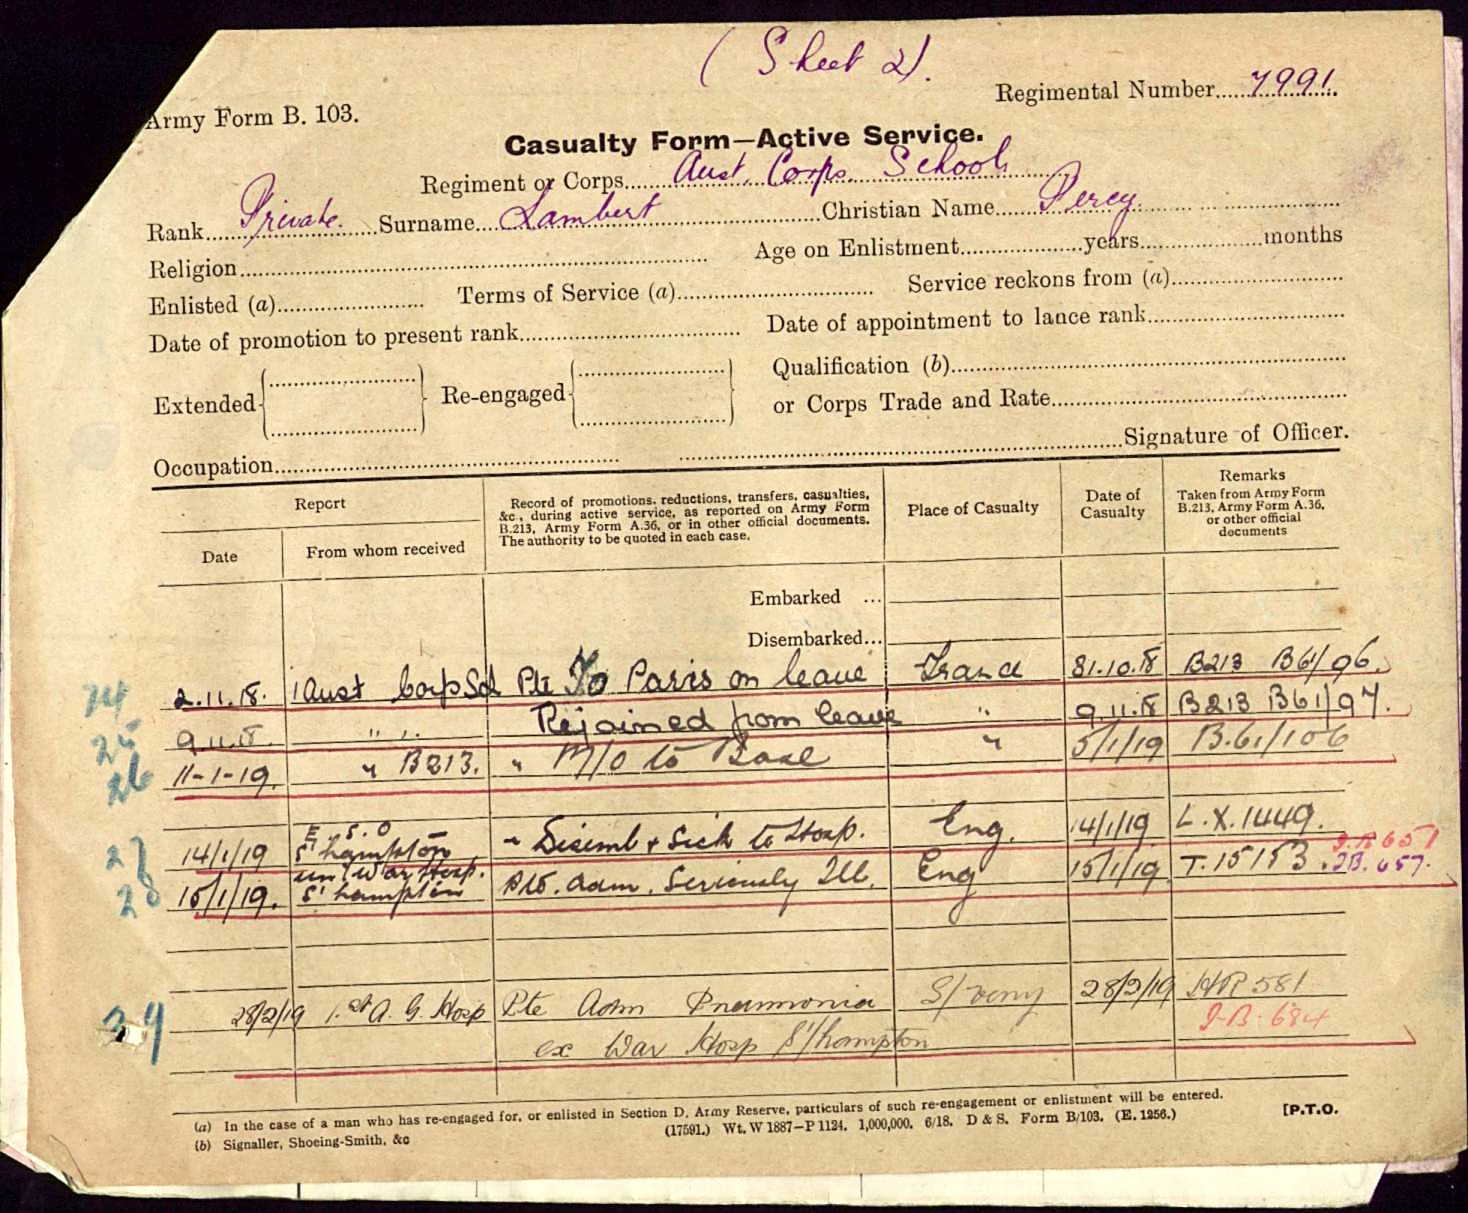 (Sheet 2).
Regimental Number 7991.
Army Form B. 103.
Casualty Form—Active Service.
Regiment or Corps Aust. Corps. School
Rank Private. Surname Lambert Christian Name Percy.
Religion Age on Enlistment years months
Enlisted (a) Terms of Service (a) Service reckons from (a)
Date of promotion to present rank Date of appointment to lance rank
Extended Re-engaged Qualification (b)
or Corps Trade and Rate
Occupation Signature of Officer.
Report
Date
From whom received
Record of promotions, reductions, transfers, casualties,
&c., during active service, as reported on Army Form
B.213, Army Form A.36, or in other official documents.
The authority to be quoted in each case.
Place of Casualty
Date of
Casualty
Remarks
Taken from Army Form
B.213, Army Form A.36,
or other official
documents
Embarked ...
Disembarked...
24 2.11.18. Aust Corp Scl Pte To Paris on leave France 31.10.18 B213 B61/96.
25 9.11.18. " " Rejoined from leave " 9.11.18 B213 B61/97.
26 11-1-19. " B213. " M/O to Base " 5/1/19 B.61/106
27 14/1/19 E.S.O S'hampton " Disemb & Sick to Hosp. Eng. 14/1/19 L.X.1449.
28 15/1/19. Uni War Hosp. S'hampton Pte. adm. Seriously Ill. Eng 15/1/19 T.15153. IB. 657.
34 28/2/19 1st A. G. Hosp Pte Adm Pneumonia 28/2/19 HP 581
ex War Hosp S'/hampton I.B. 684
(a) In the case of a man who has re-engaged for, or enlisted in Section D, Army Reserve, particulars of such re-engagement or enlistment will be entered.
(b) Signaller, Shoeing-Smith, &c (17591.) Wt. W 1887—P 1124. 1,000,000. 6/18. D & S. Form B/103. (E. 1256.)
[P.T.O.